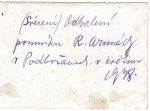 (Svěcení) Odhalení
pomníku R. armády
v Podbořanech, v květnu
1948.